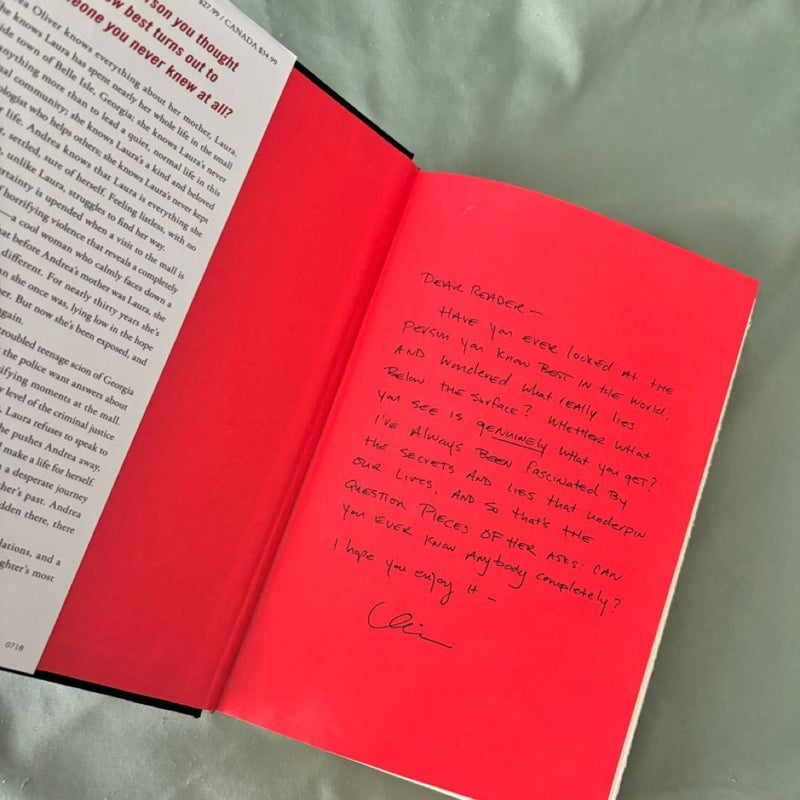 $27.99 / CANADA $34.99
rson you thought
ow best turns out to
eone you never knew at all?
ea Oliver knows everything about her mother, Laura.
he knows Laura has spent nearly her whole life in the small
ide town of Belle Isle, Georgia; she knows Laura's never
anything more than to lead a quiet, normal life in this
al community; she knows Laura's a kind and beloved
ologist who helps others; she knows Laura's never kept
r life. Andrea knows that Laura is everything she
t, settled, sure of herself. Feeling listless, with no
, unlike Laura, struggles to find her way.
ertainty is upended when a visit to the mall is
f horrifying violence that reveals a completely
—a cool woman who calmly faces down a
at before Andrea's mother was Laura, she
different. For nearly thirty years she's
n she once was, lying low in the hope
er. But now she's been exposed, and
gain.
troubled teenage scion of Georgia
the police want answers about
ifying moments at the mall.
y level of the criminal justice
Laura refuses to speak to
he pushes Andrea away,
make a life for herself.
n a desperate journey
ther's past. Andrea
dden there, there
lations, and a
ghter's most
0718
DEAR READER —
HAVE YOU EVER looked AT THE
PERSON YOU KNOW BEST IN the WORLD,
AND WONDERED WHAT REALLY LIES
BELOW THE SURFACE? WHETHER WHAT
YOU SEE IS GENUINELY WHAT YOU GET?
I'VE ALWAYS BEEN FASCINATED BY
THE SECRETS AND LIES THAT UNDERPIN
OUR LIVES, AND SO THAT'S THE
QUESTION PIECES OF HER ASKS: CAN
YOU EVER KNOW ANYBODY COMPLETELY?
I hope you enjoy it —